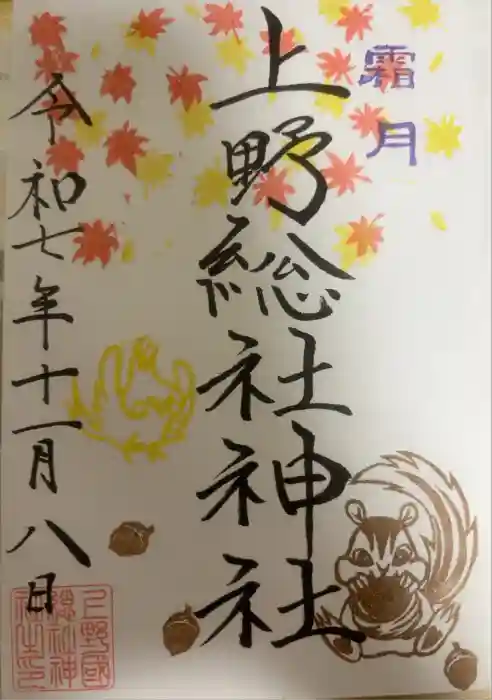 霜月
上野総社神社
令和七年十一月八日
上野國
總社神
社之印